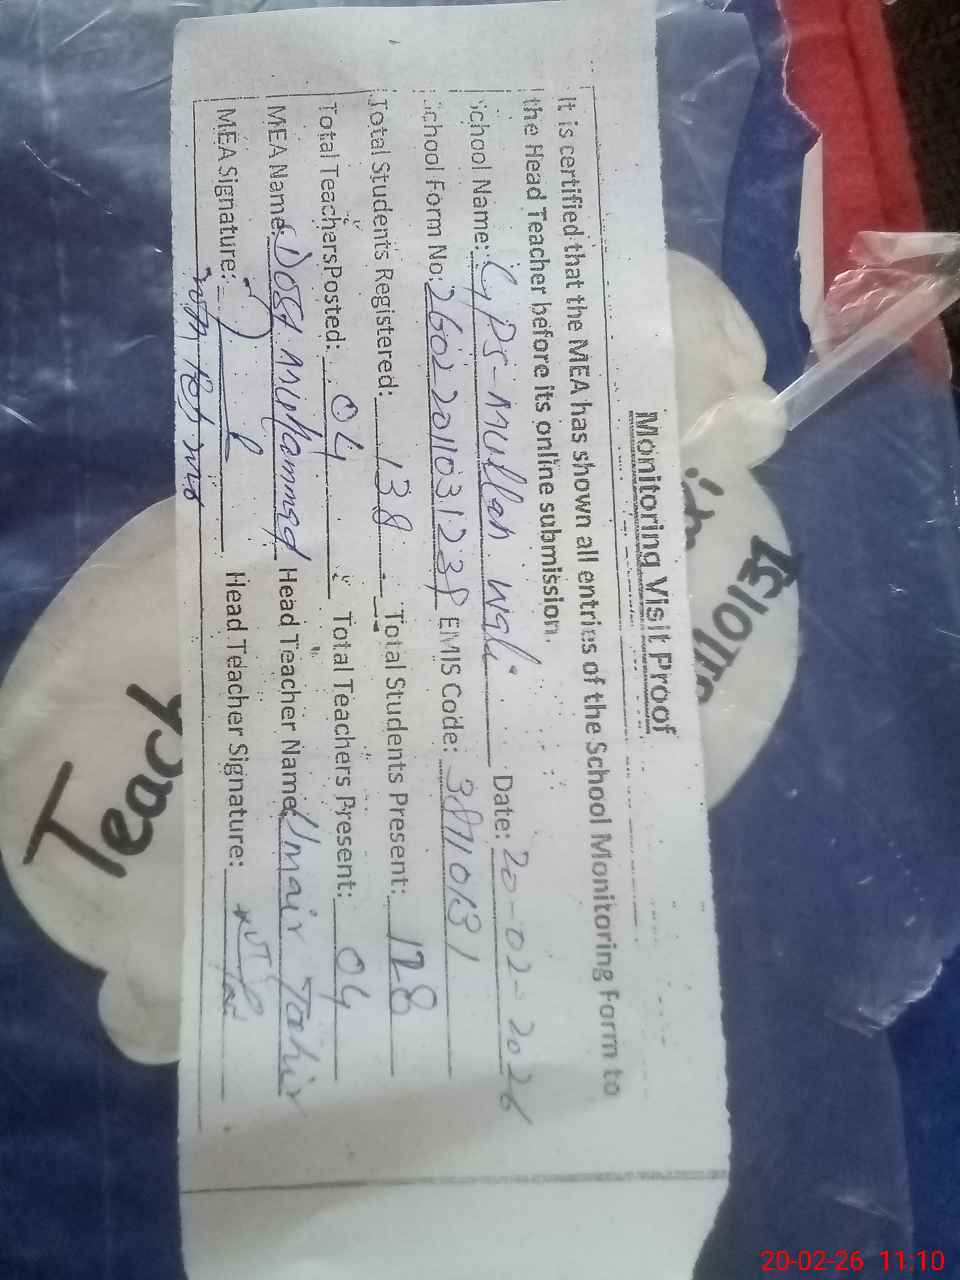 Monitoring Visit Proof
It is certified that the MEA has shown all entries of the School Monitoring Form to
the Head Teacher before its online submission.
School Name: GPS-Mullah Wali Date: 20-02-2026
School Form No: EMIS Code: 38710131
Total Students Registered: 138 Total Students Present: 128
Total Teachers Posted: 04 Total Teachers Present: 04
MEA Name: Dost Muhammad Head Teacher Name: Umair Tahir
MEA Signature: Head Teacher Signature:
Teach
10131
20-02-26 11:10